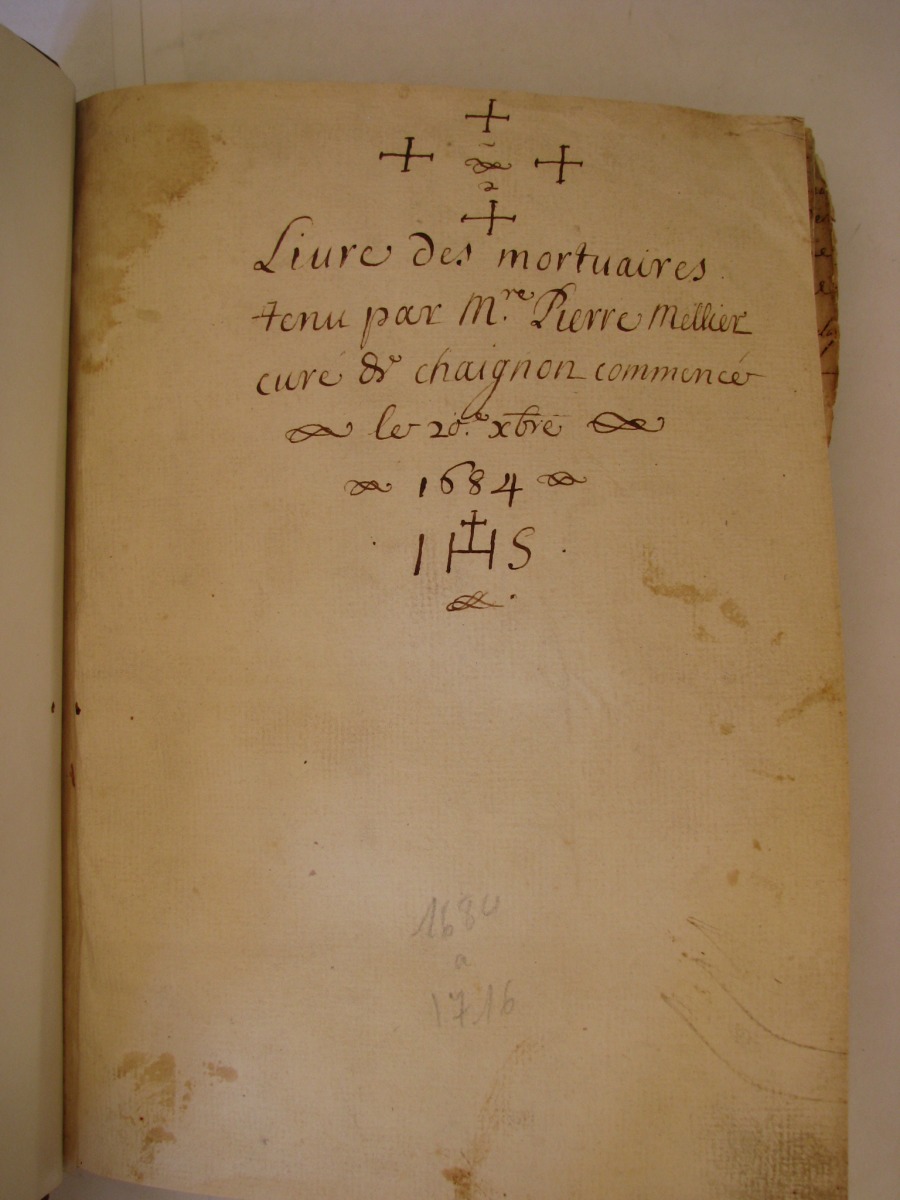 Liure des mortuaires
tenu par M.re Pierre Mellier
curé de chaignon commencé
le 20.e xbre
1684
IHS
1684
a
1716